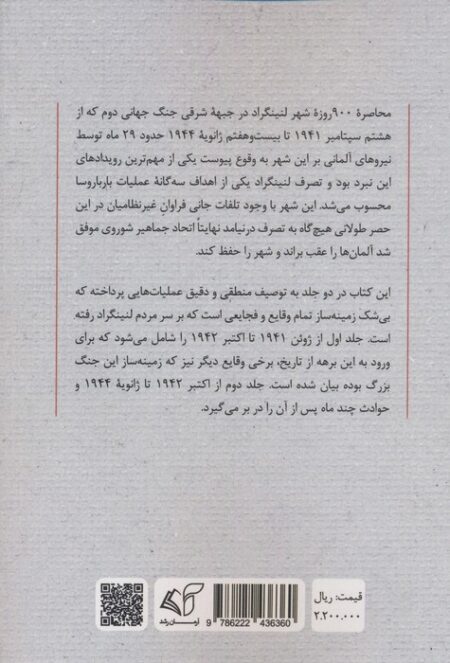 محاصرهٔ ۹۰۰روزهٔ شهر لنینگراد در جبههٔ شرقی جنگ جهانی دوم که از
هشتم سپتامبر ۱۹۴۱ تا بیست‌وهفتم ژانویهٔ ۱۹۴۴ حدود ۲۹ ماه توسط
نیروهای آلمانی بر این شهر به وقوع پیوست یکی از مهم‌ترین رویدادهای
این نبرد بود و تصرف لنینگراد یکی از اهداف سه‌گانهٔ عملیات بارباروسا
محسوب می‌شد. این شهر با وجود تلفات جانی فراوانِ غیرنظامیان در این
حصر طولانی هیچ‌گاه به تصرف درنیامد نهایتاً اتحاد جماهیر شوروی موفق
شد آلمان‌ها را عقب براند و شهر را حفظ کند.
این کتاب در دو جلد به توصیف منطقی و دقیق عملیات‌هایی پرداخته که
بی‌شک زمینه‌ساز تمام وقایع و فجایعی است که بر سر مردم لنینگراد رفته
است. جلد اول از ژوئن ۱۹۴۱ تا اکتبر ۱۹۴۲ را شامل می‌شود که برای
ورود به این برهه از تاریخ، برخی وقایع دیگر نیز که زمینه‌ساز این جنگ
بزرگ بوده بیان شده است. جلد دوم از اکتبر ۱۹۴۲ تا ژانویهٔ ۱۹۴۴ و
حوادث چند ماه پس از آن را در بر می‌گیرد.
قیمت: ریال
۲.۲۰۰.۰۰۰
9 786222 436360
آرمان رشد